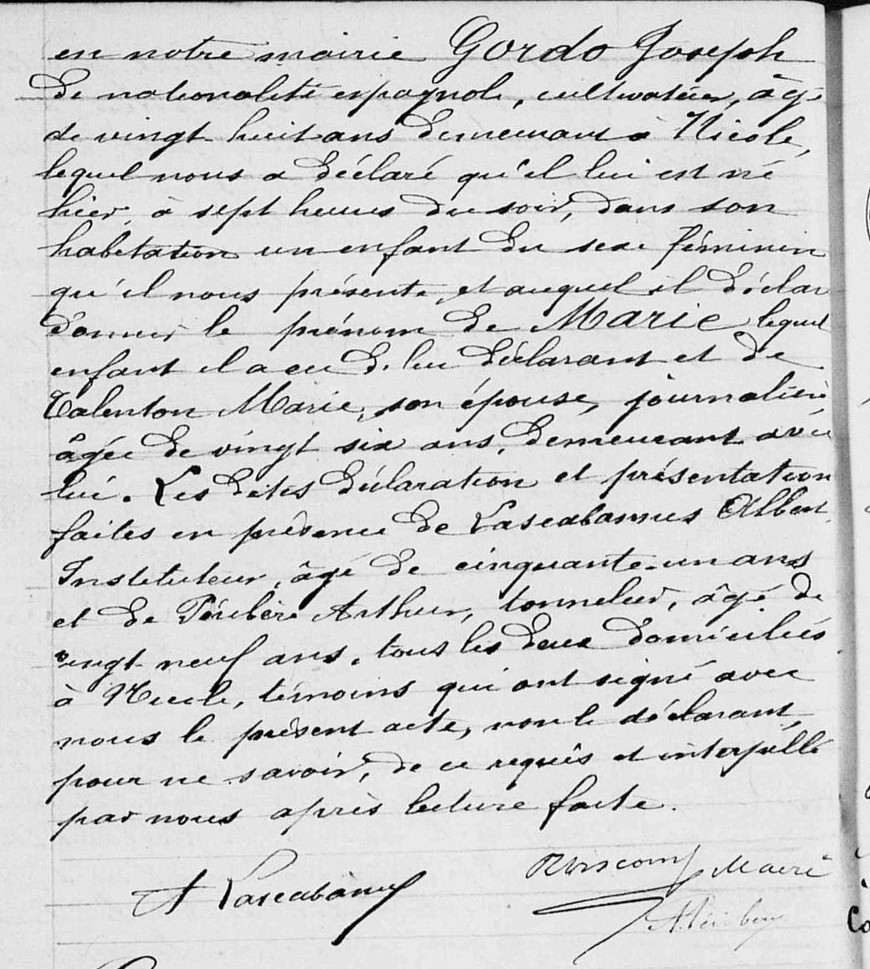 en notre mairie Gordo Joseph
de nationalité espagnole, cultivateur, âgé
de vingt huit ans demeurant à Nicole,
lequel nous a déclaré qu'il lui est né
hier, à sept heures du soir, dans son
habitation un enfant du sexe féminin
qu'il nous présente, et auquel il déclar
donner le prénom de Marie, lequel
enfant il a eu de lui déclarant et de
Talenton Marie, son épouse, journalière
âgée de vingt six ans, demeurant avec
lui. Les dites déclaration et présentation
faites en présence de Lascabannes Albert
Instituteur, âgé de cinquante-un ans
et de Péribère Arthur, tonnelier, âgé de
vingt neuf ans, tous les deux domiciliés
à Nicole, témoins qui ont signé avec
nous le présent acte, non le déclarant,
pour ne savoir, de ce requis et interpellé
par nous après lecture faite.
A Lascabannes
Maire